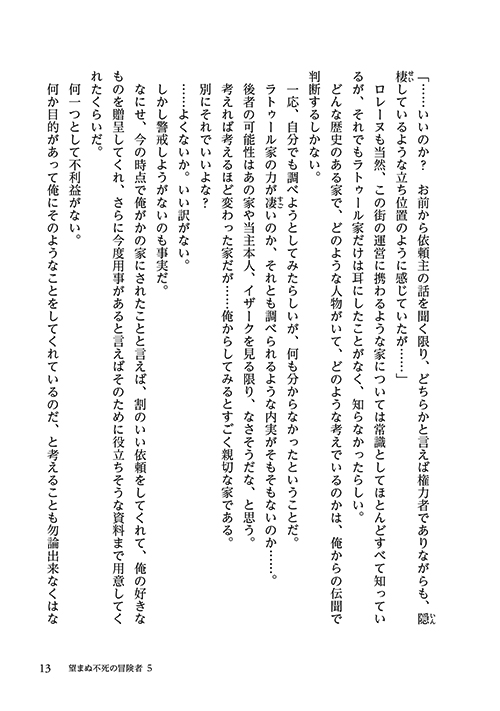 「……いいのか？　お前から依頼主の話を聞く限り、どちらかと言えば権力者でありながらも、隠
棲しているような立ち位置のように感じていたが……」
　ロレーヌも当然、この街の運営に携わるような家については常識としてほとんどすべて知ってい
るが、それでもラトゥール家だけは耳にしたことがなく、知らなかったらしい。
　どんな歴史のある家で、どのような人物がいて、どのような考えでいるのかは、俺からの伝聞で
判断するしかない。
　一応、自分でも調べようとしてみたらしいが、何も分からなかったということだ。
　ラトゥール家の力が凄いのか、それとも調べられるような内実がそもそもないのか……。
　後者の可能性はあの家や当主本人、イザークを見る限り、なさそうだな、と思う。
　考えれば考えるほど変わった家だが……俺からしてみるとすごく親切な家である。
　別にそれでいいよな？
　……よくないか。いい訳がない。
　しかし警戒しようがないのも事実だ。
　なにせ、今の時点で俺がかの家にされたことと言えば、割のいい依頼をしてくれて、俺の好きな
ものを贈呈してくれ、さらに今度用事があると言えばそのために役立ちそうな資料まで用意してく
れたくらいだ。
　何一つとして不利益がない。
　何か目的があって俺にそのようなことをしてくれているのだ、と考えることも勿論出来なくはな
13　望まぬ不死の冒険者 5